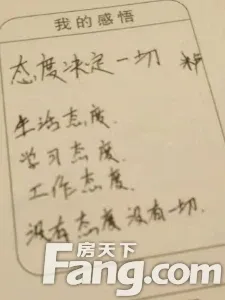 我的感悟
态度决定一切
生活态度.
学习态度.
工作态度.
没有态度没有一切.
房天下
Fang.com